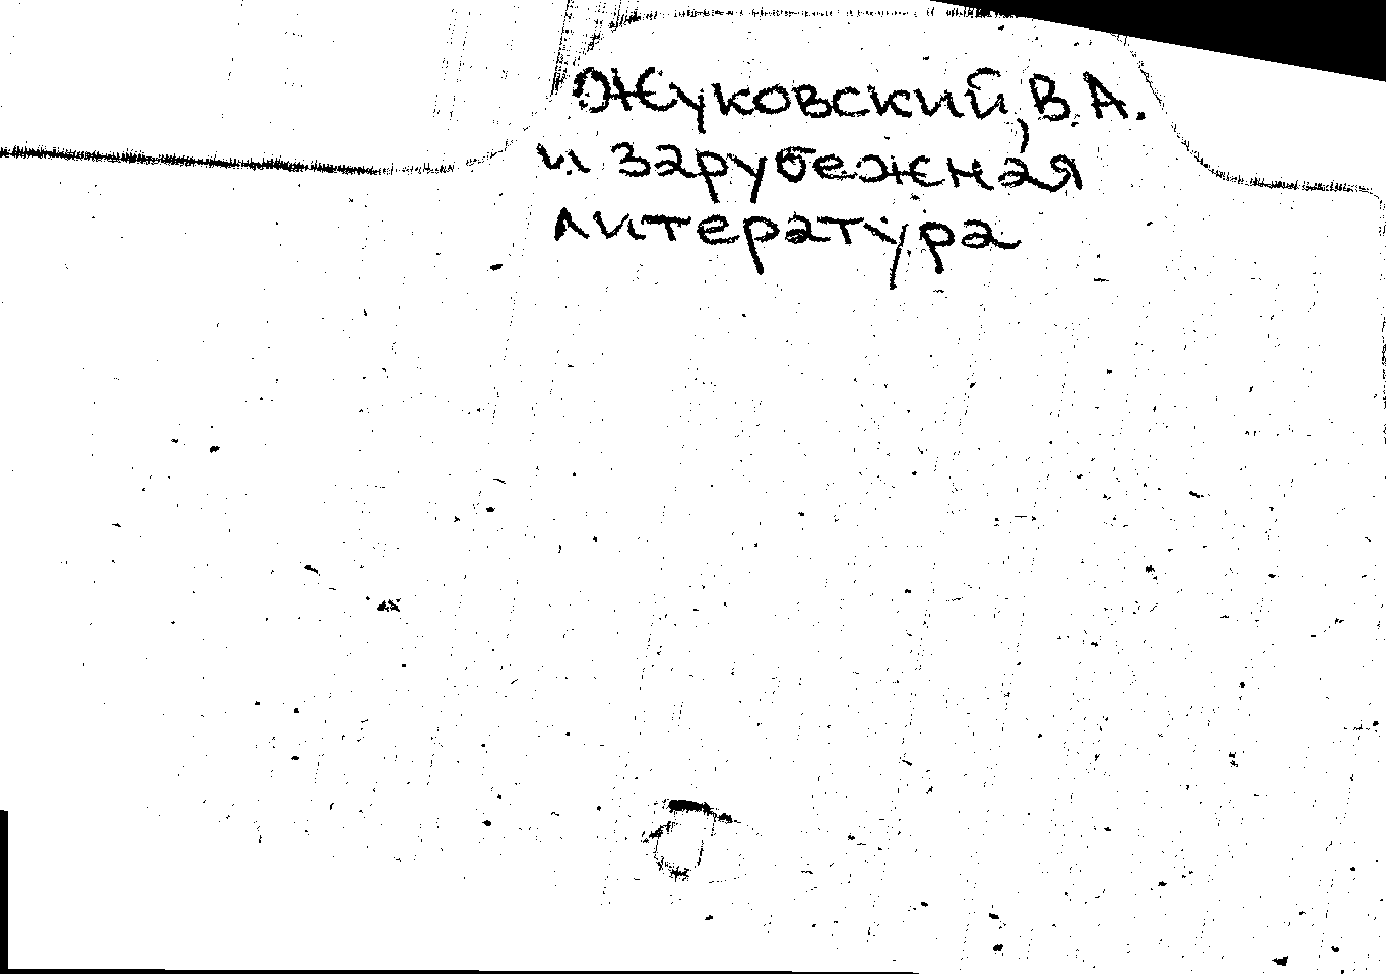 Жуковский, В. А.
и зарубежная
литература